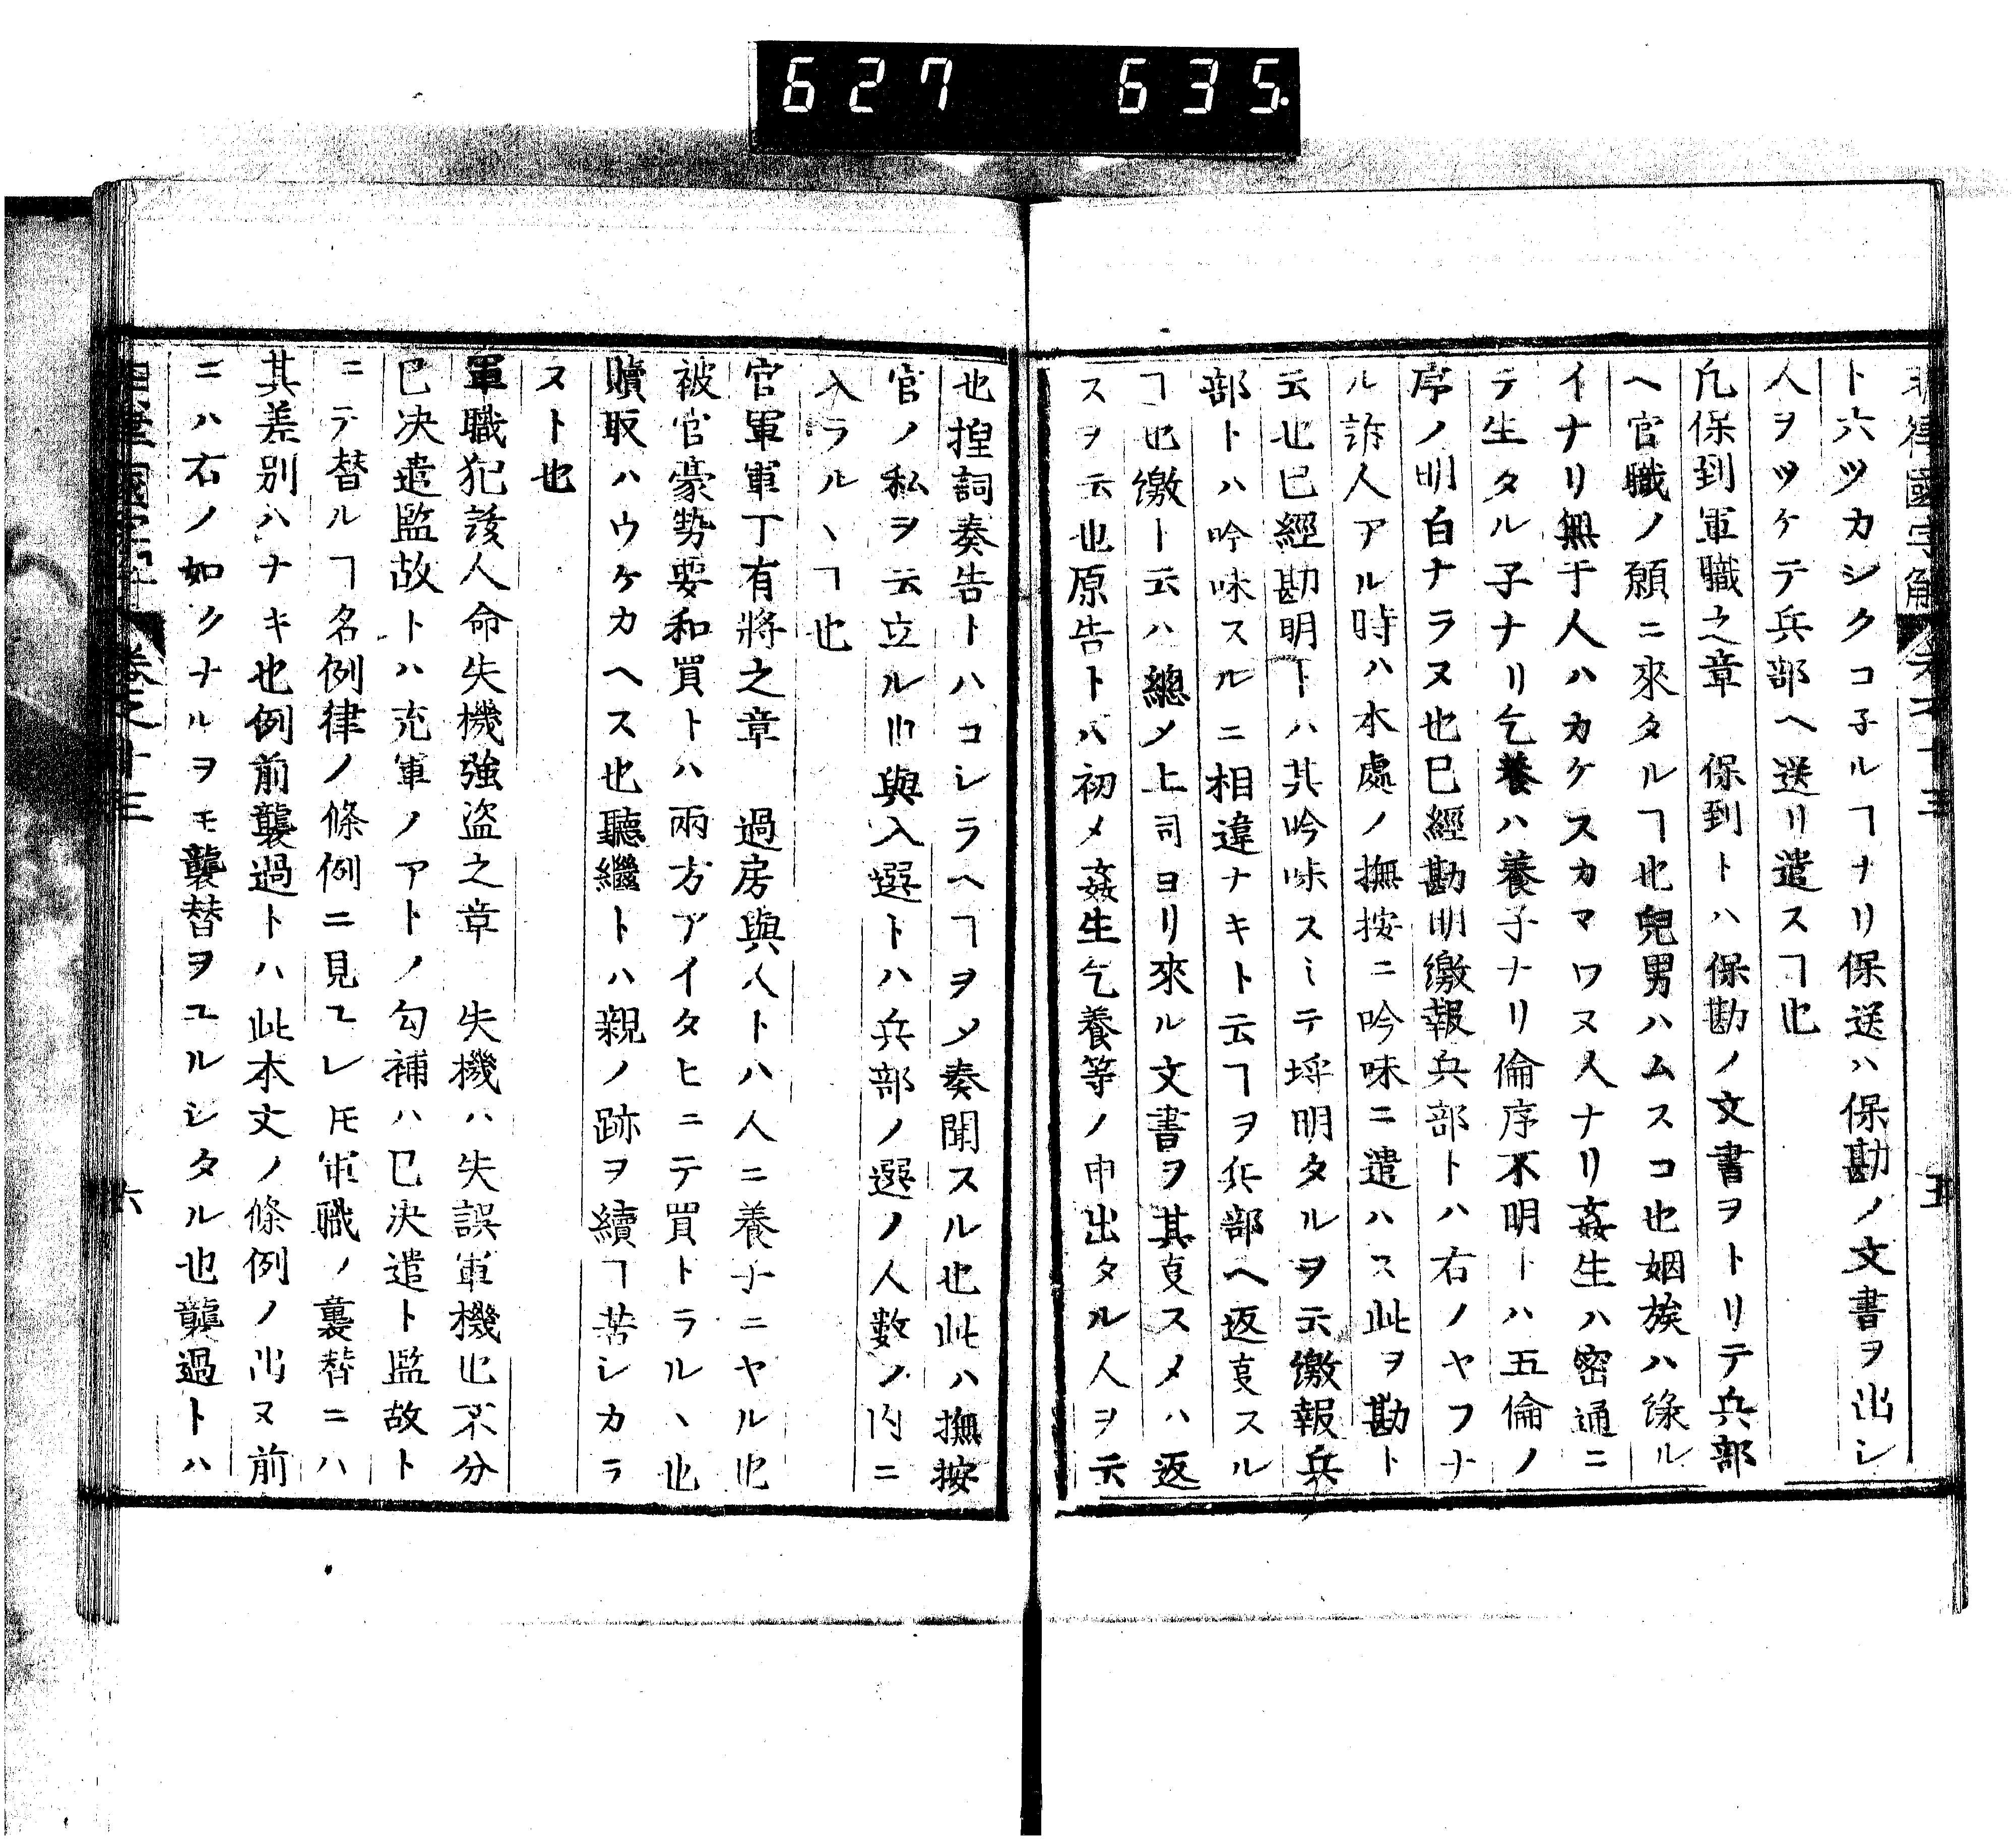 627 635
律國字解 卷之十三 五
ト六ツカシクコ子ルヿナリ保送ハ保勘ノ文書ヲ出シ
人ヲツケテ兵部ヘ送リ遣スヿ也
凢保到軍職之章 保到トハ保勘ノ文書ヲトリテ兵部
ヘ官職ノ願ニ來タルヿ也兒男ハムスコ也姻族ハ縁ル
イナリ無干人ハカケスカマワヌ人ナリ姦生ハ密通ニ
テ生タル子ナリ乞養ハ養子ナリ倫序不明トハ五倫ノ
序ノ明白ナラヌ也已經勘明繳報兵部トハ右ノヤフナ
ル訴人アル時ハ本處ノ撫按ニ吟味ニ遣ハス此ヲ勘ト
云也已經勘明トハ其吟味スミテ埓明タルヲ云繳報兵
部トハ吟味スルニ相違ナキト云ヿヲ兵部ヘ返㕝スル
ヿ也繳ト云ハ總メ上司ヨリ來ル文書ヲ其㕝スメハ返
スヲ云也原告トハ初メ姦生乞養等ノ申出タル人ヲ云
也揑詞奏告トハコシラヘヿヲメ奏聞スル也此ハ撫按
官ノ私ヲ云立ル川與入選トハ兵部ノ選ノ人数ノ内ニ
入ラルヽヿ也
官軍軍丁有將之章 過房與人トハ人ニ養子ニヤル也
被官豪勢要和買トハ兩方アイタヒニテ買トラルヽ也
贖取ハウケカヘス也聽繼トハ親ノ跡ヲ續ヿ苦シカラ
ヌト也
軍職犯該人命失機強盗之章 失機ハ失誤軍機也不分
已决遣監故トハ充軍ノアトノ勾補ハ已决遣ト監故ト
ニテ替ルヿ名例律ノ條例ニ見ヱレ𪜈軍職ノ襲替ニハ
其差別ハナキ也例前襲過トハ此本文ノ條例ノ出ヌ前
ニハ右ノ如クナルヲモ襲替ヲユルシタル也襲過トハ
律國字解 卷之十三 六